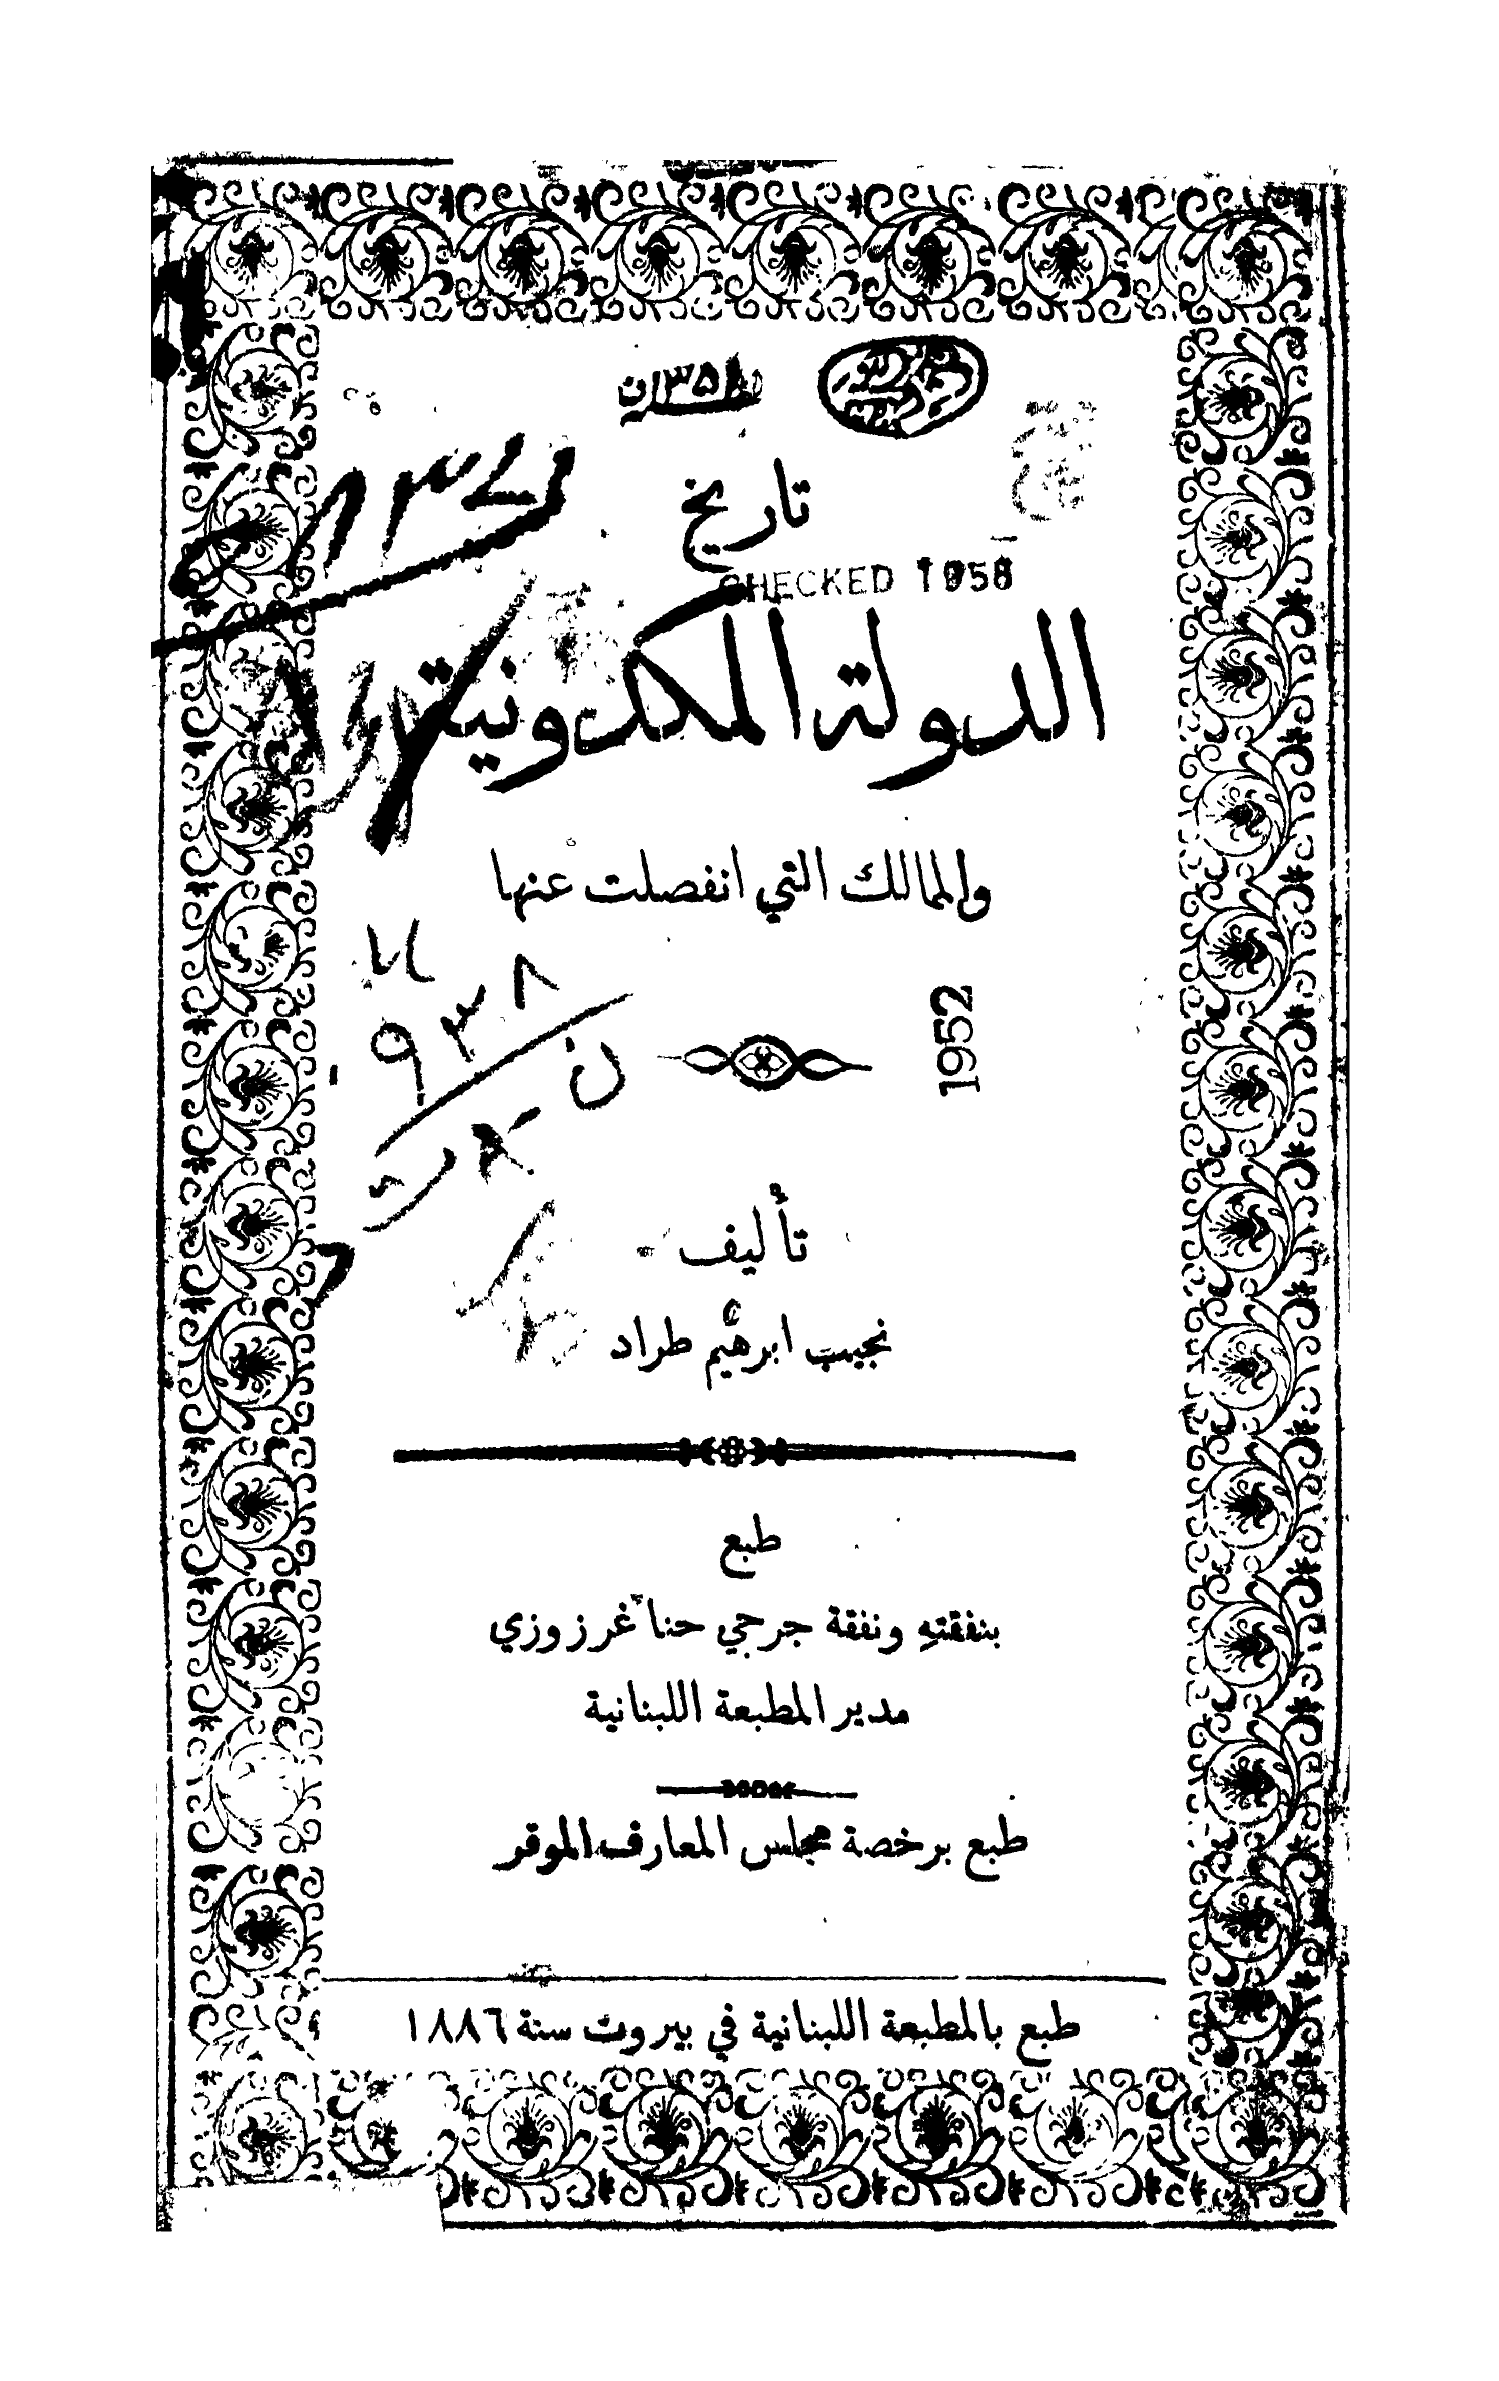 تاريخ
CHECKED 1958
الدولة المكدونية
والممالك التي انفصلت عنها
1952
تأليف
نجيب ابرهيم طراد
طبع
بنفقتهِ ونفقة جرجي حنا غرزوزي
مدير المطبعة اللبنانية
طبع برخصة مجلس المعارف الموقر
طبع بالمطبعة اللبنانية في بيروت سنة ١٨٨٦